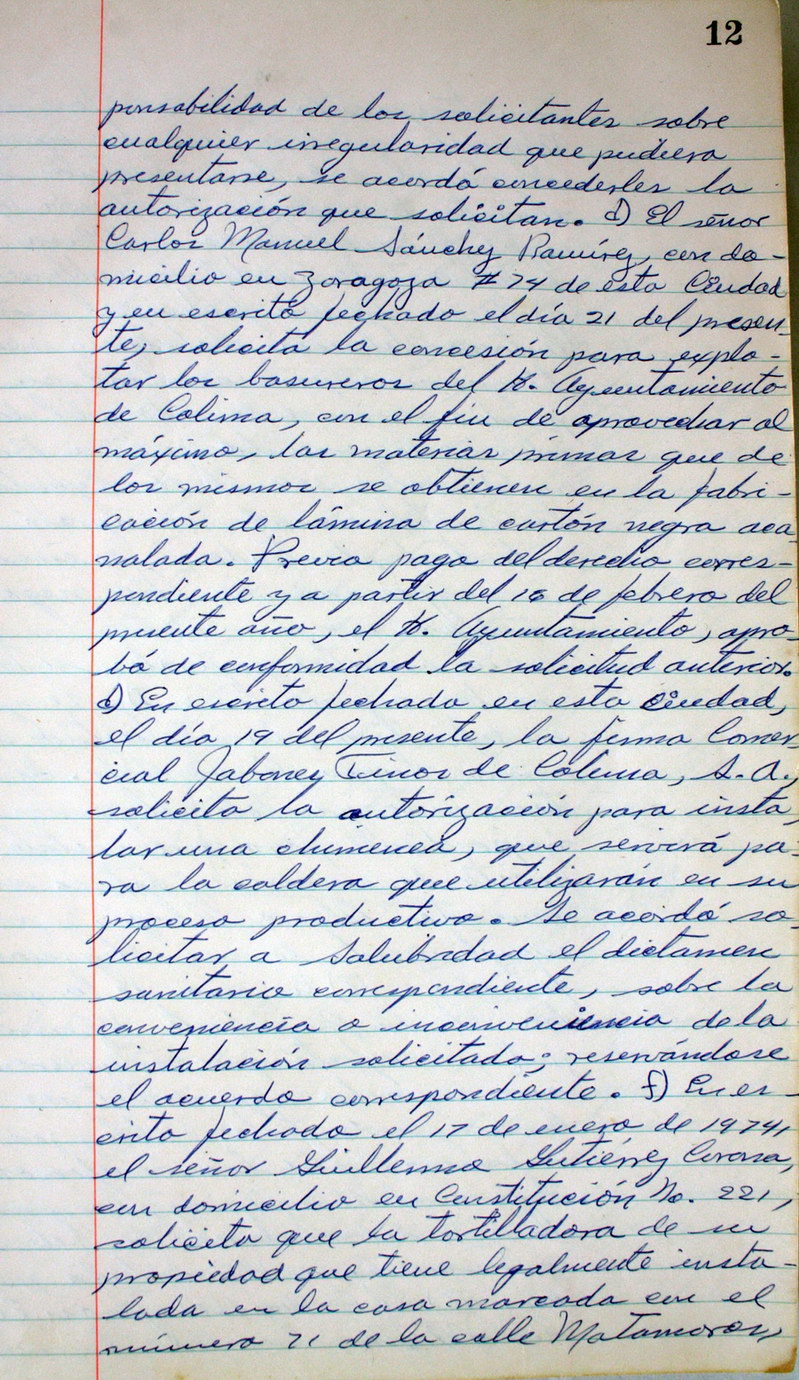 12
ponsabilidad de los solicitantes sobre
cualquier irregularidad que pudiera
presentarse, se acordó concederles la
autorización que solicitan. d) El señor
Carlos Manuel Sánchez Ramírez, con do-
micilio en Zaragoza # 74 de esta Ciudad
y en escrito fechado el día 21 del presen-
te, solicita la concesión para explo-
tar los basureros del H. Ayuntamiento
de Colima, con el fin de aprovechar al
máximo, las materias primas que de
los mismos se obtienen en la fabri-
cación de lámina de cartón negra aca-
nalada. Previo pago del derecho corres-
pondiente y a partir del 16 de febrero del
presente año, el H. Ayuntamiento, apro-
bó de conformidad la solicitud anterior.
e) En escrito fechado en esta ciudad,
el día 19 del presente, la firma Comer-
cial Jabones Finos de Colima, S. A.,
solicita la autorización para insta-
lar una chimenea, que servirá pa-
ra la caldera que utilizarán en su
proceso productivo. Se acordó so-
licitar a Salubridad el dictamen
sanitario correspondiente, sobre la
conveniencia o inconveniencia de la
instalación solicitada; reservándose
el acuerdo correspondiente. f) En es-
crito fechado el 17 de enero de 1974,
el señor Guillermo Gutiérrez Corona,
con domicilio en Constitución No. 221,
solicita que la tortilladora de su
propiedad que tiene legalmente insta-
lada en la casa marcada con el
número 71 de la calle Matamoros,